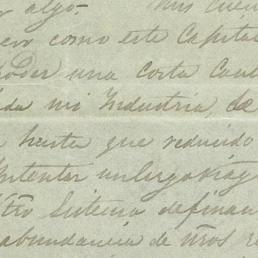 algo. Mis cuen
como este Capita
poder una corta Can
mi Industria, de
hasta que reducido
intentar un largo viag
tro Sistema de finan
abundancia de ntros r